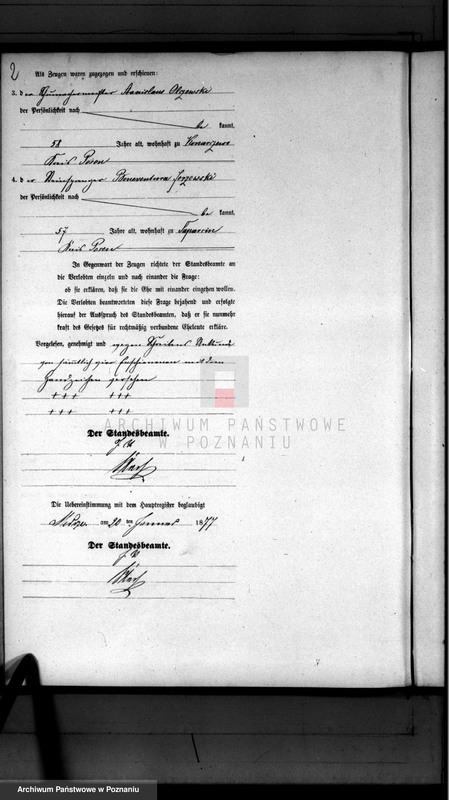 2
Als Zeugen waren zugezogen und erschienen:
3. der Schuhmachermeister Stanislaus
der Persönlichkeit nach
be kannt,
58 Jahre alt, wohnhaft zu
Kreis Posen
4. der Bonaventura
der Persönlichkeit nach
be kannt,
57 Jahre alt, wohnhaft zu
Kreis Posen
In Gegenwart der Zeugen richtete der Standesbeamte an
die Verlobten einzeln und nach einander die Frage:
ob sie erklären, daß sie die Ehe mit einander eingehen wollen.
Die Verlobten beantworteten diese Frage bejahend und erfolgte
hierauf der Ausspruch des Standesbeamten, daß er sie nunmehr
kraft des Gesetzes für rechtmäßig verbundene Eheleute erkläre.
Vorgelesen, genehmigt und wegen Schreibens Unkunde
von sämtlich vier Erschienenen mit dem
Handzeichen versehen
+++ +++
+++ +++
Der Standesbeamte.
Die Uebereinstimmung mit dem Hauptregister beglaubigt
am 20 ten Januar 1877
Der Standesbeamte.
ARCHIWUM PAŃSTWOWE
W POZNANIU
Archiwum Państwowe w Poznaniu